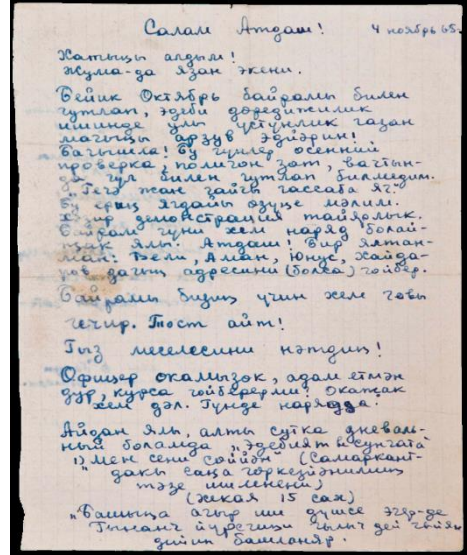 Салам Атдаш! 4 ноябрь 65.
Хатыңы алдым!
Жума-да язан экени.
Бейик Октябрь байрамы билен
гутлап, эдеби дөредижилик
ишинде улы үстүнлик газан
магыңы арзув эдйәрин!
Багышла! Бу гүнлер осенний
проверка, полигон зат, вагтын-
да гүл билен гутлап билмедим.
"Гечэ жан гайгы гассаба яг."
ериң ягдайы өзүңе мәлим.
Хәзир демонстрация тайярлык.
Байрам гүни хем наряд болай-
ялы. Атдаш! Бир
Вели, Аман, Юнус, Хайда-
ров дагың адресини (болса) гойбер.
Байрамы бизиң үчин хем говы
гечир. Тост айт!
Гыз меселесини нәтдиң!
Офицер окамызок, адам етмән
дур, курса гойберерми! Окажак
хем дәл. Гүнде нарядда.
Айдан ялы, алты сутка дневаль-
ный боламда "Эдебият ве сунгата"
1) "Мен сени сөййән" (Самаркант-
дакы саңа гөркезйәнимиң
тәзе
(хекая 15 сах)
"Башыңа агыр иш дүшсе эгер-де
йүрегиңи гылыч дей
дийип башланяр.